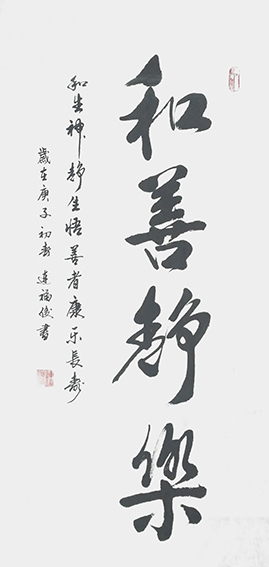 和善静樂
和生神静生悟善者康乐長壽
歲在庚子初春連福俊書